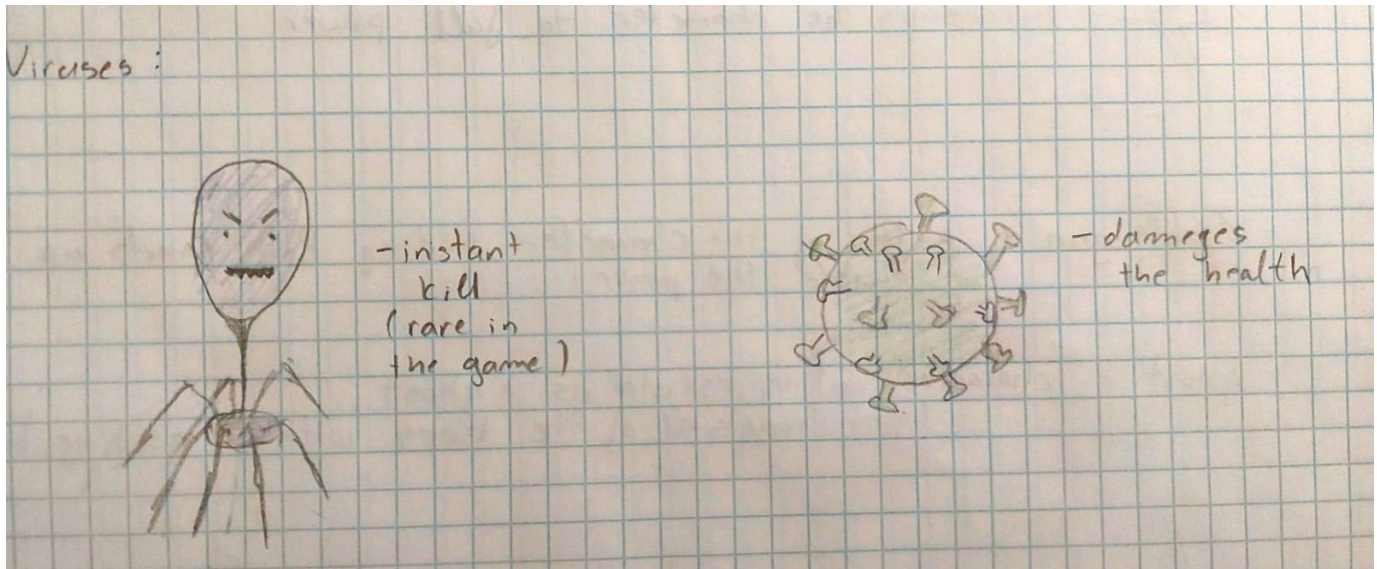 Viruses :
-instant
kill
(rare in
the game)
-dameges
the health